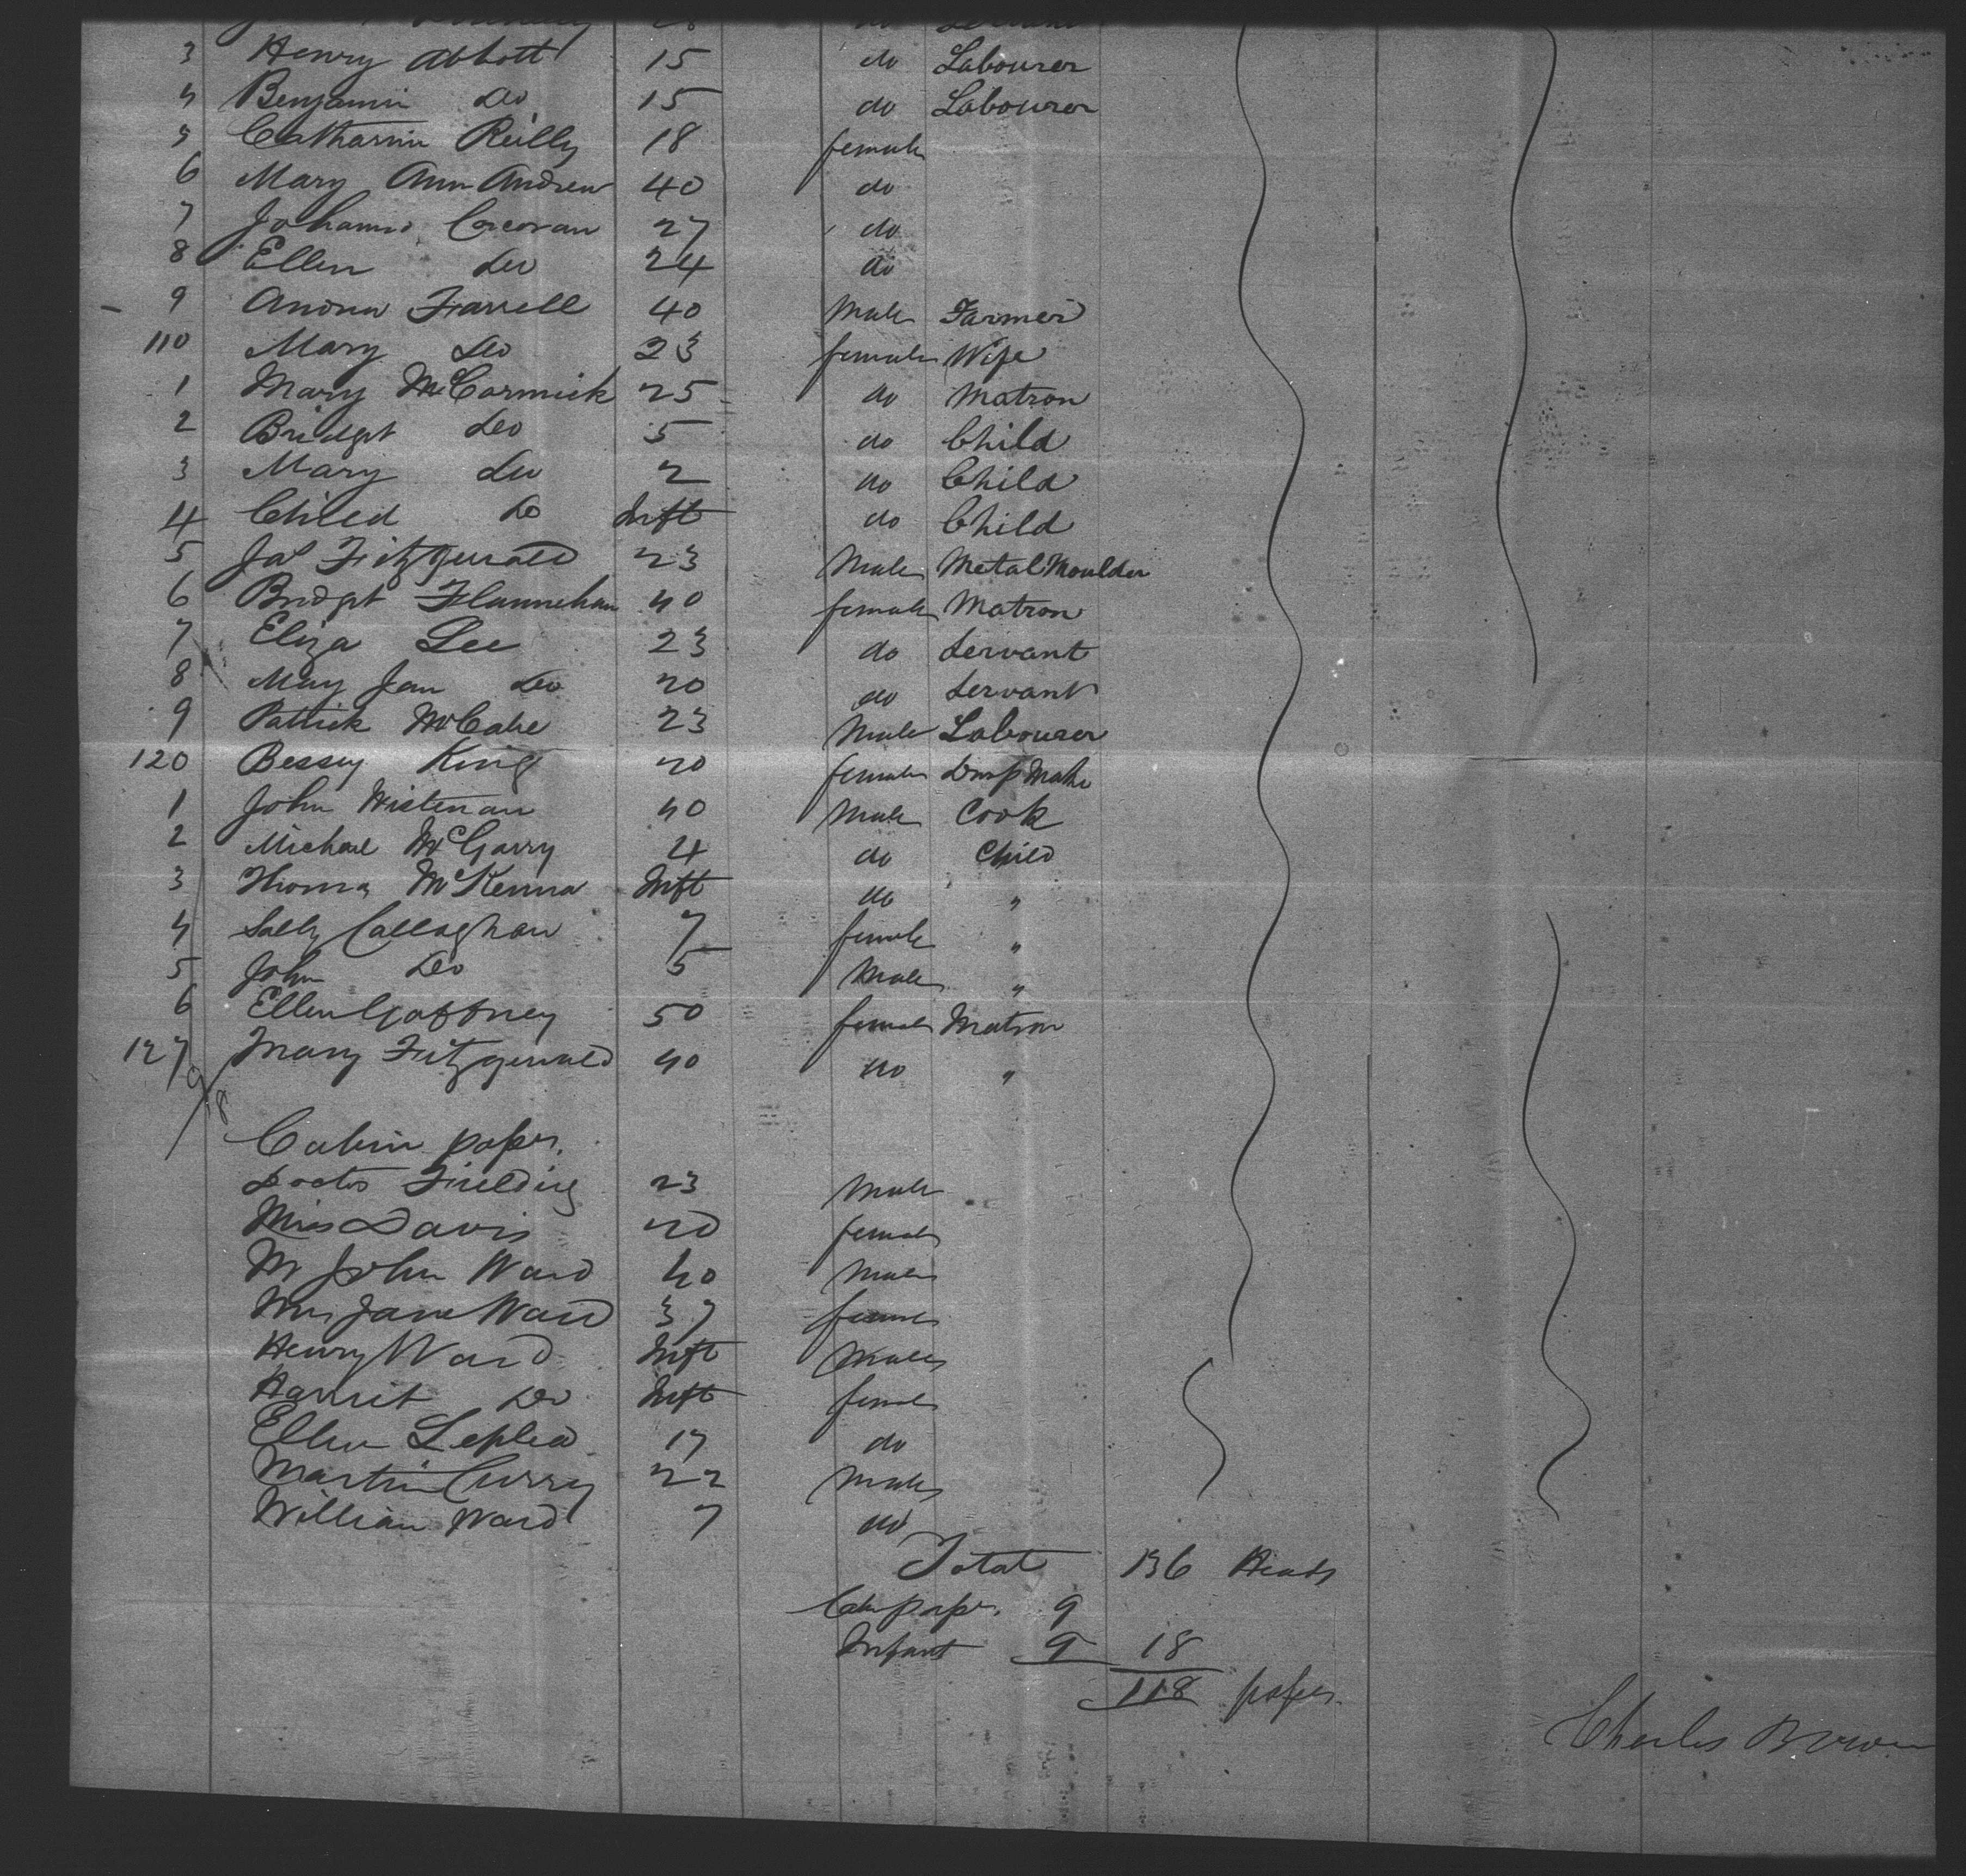 3 Henry Abbott 15 do Labourer
4 Benjamin Do 15 do Labourer
5 Catharin Reilly 18 female
6 Mary Ann Andrew 40 do
7 Johanna Corcoran 27 do
8 Ellen Do 24 do
9 Andrew Farrell 40 Male Farmer
110 Mary Do 23 female Wife
1 Mary McCormick 25 do Matron
2 Bridget Do 5 do Child
3 Mary Do 2 do Child
4 Child Do Inft do Child
5 Jas Fitzgerald 23 Male Metal Moulder
6 Bridget Flannehan 40 female Matron
7 Eliza Lee 23 do Servant
8 May Jan Do 20 do Servant
9 Patrick McCabe 23 Male Labourer
120 Bessey King 20 female
1 John 40 Male Cook
2 Michael McGarry 4 do Child
3 Thomas McKenna Inft do "
4 Sally Callaghan 7 female "
5 John Do 5 Male "
6 Ellen Gaffney 50 female Matron
127 Mary Fitzgerald 40 do "
9
18
Cabin pass.
Doctor Fielding 23 Male
Miss Davis 20 female
Mr John Ward 40 Male
Mrs Jane Ward 37 female
Henry Ward Inft Male
Harriet Do Inft female
Ellen 17 do
Martin Curry 22 Male
William Ward 7 do
Total 136 Heads
Cabn pass. 9
Infant 9 18
118 passr.
Charles Brown